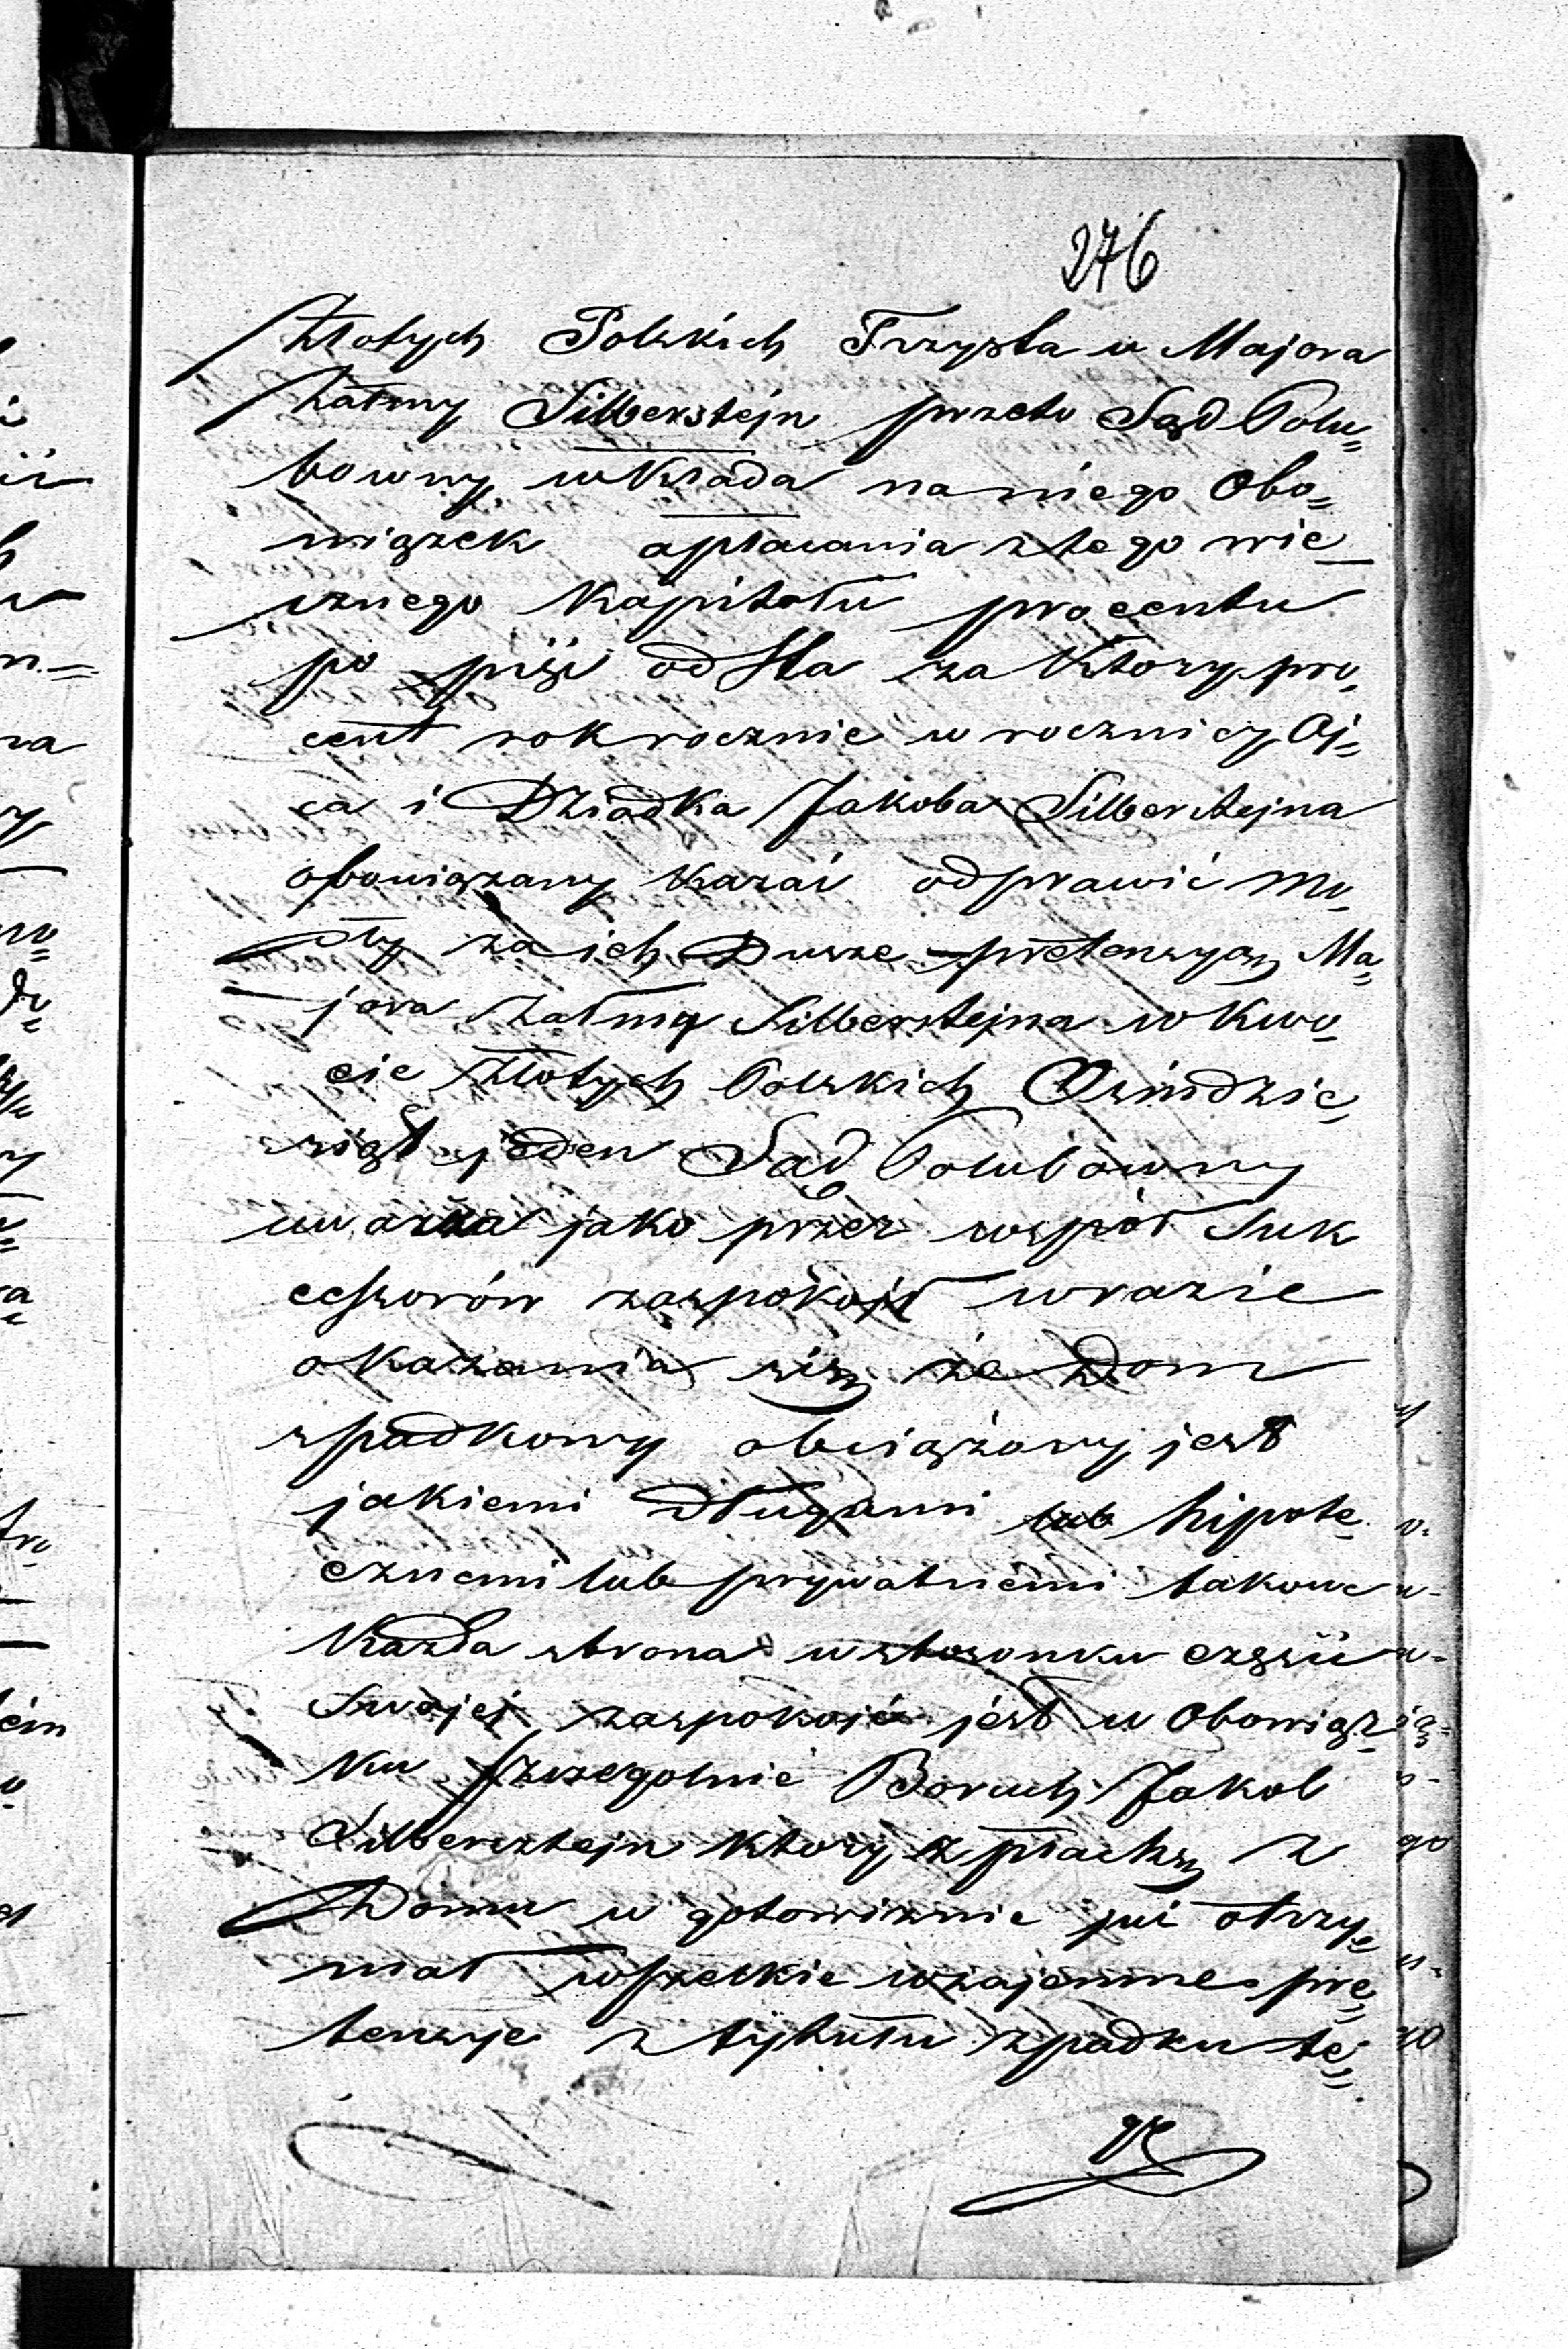 276
Złotych Polskich Trzysta u Majora
Załmy Silberstejn przeto Sąd Polu=
bowny wkłada na niego Obo=
wiązek opłacania z tego wie=
cznego Kapitału procentu
po pięć od Sta za który pro=
cent rok rocznie w rocznicy Oj=
ca i Dziadka Jakoba Silberstejna
obowiązany kazać odprawić mo=
dły za ich Dusze pretensyą Ma=
jora Załmy Silberstejna w kwo=
cie Złotych Polskich Ośmdzie=
siąt jeden Sąd Polubowny
uważa jako przez współ Suk
cessorów zaspokojt w razie
okazania się że Dom
spadkowy obciążony jest
jakiemi długami lub hipote=
cznemi lub prywatnemi takowe
Każda strona w stosonku części
Swojej zaspokoić jest w Obowiąz=
ku szczegolnie Boruch Jakob
Silbersztejn który spłachę z
Domu w gotowiznie już otrzy=
mał wszelkie wzajemne pre=
tensye z tytułu spadku te=